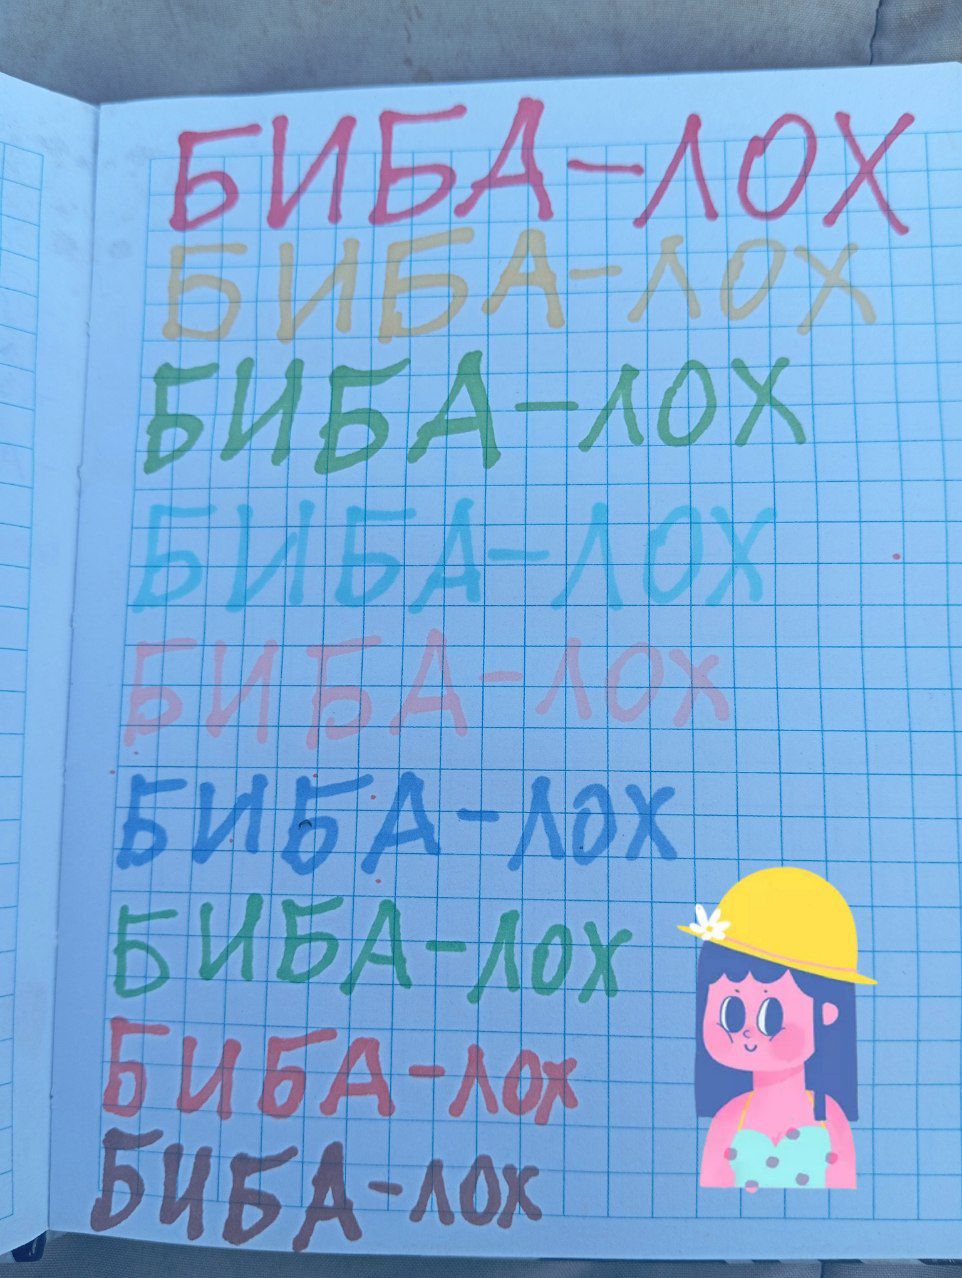 БИБА-ЛОХ
БИБА-ЛОХ
БИБА-ЛОХ
БИБА-ЛОХ
БИБА-ЛОХ
БИБА-ЛОХ
БИБА-ЛОХ
БИБА-ЛОХ
БИБА-ЛОХ